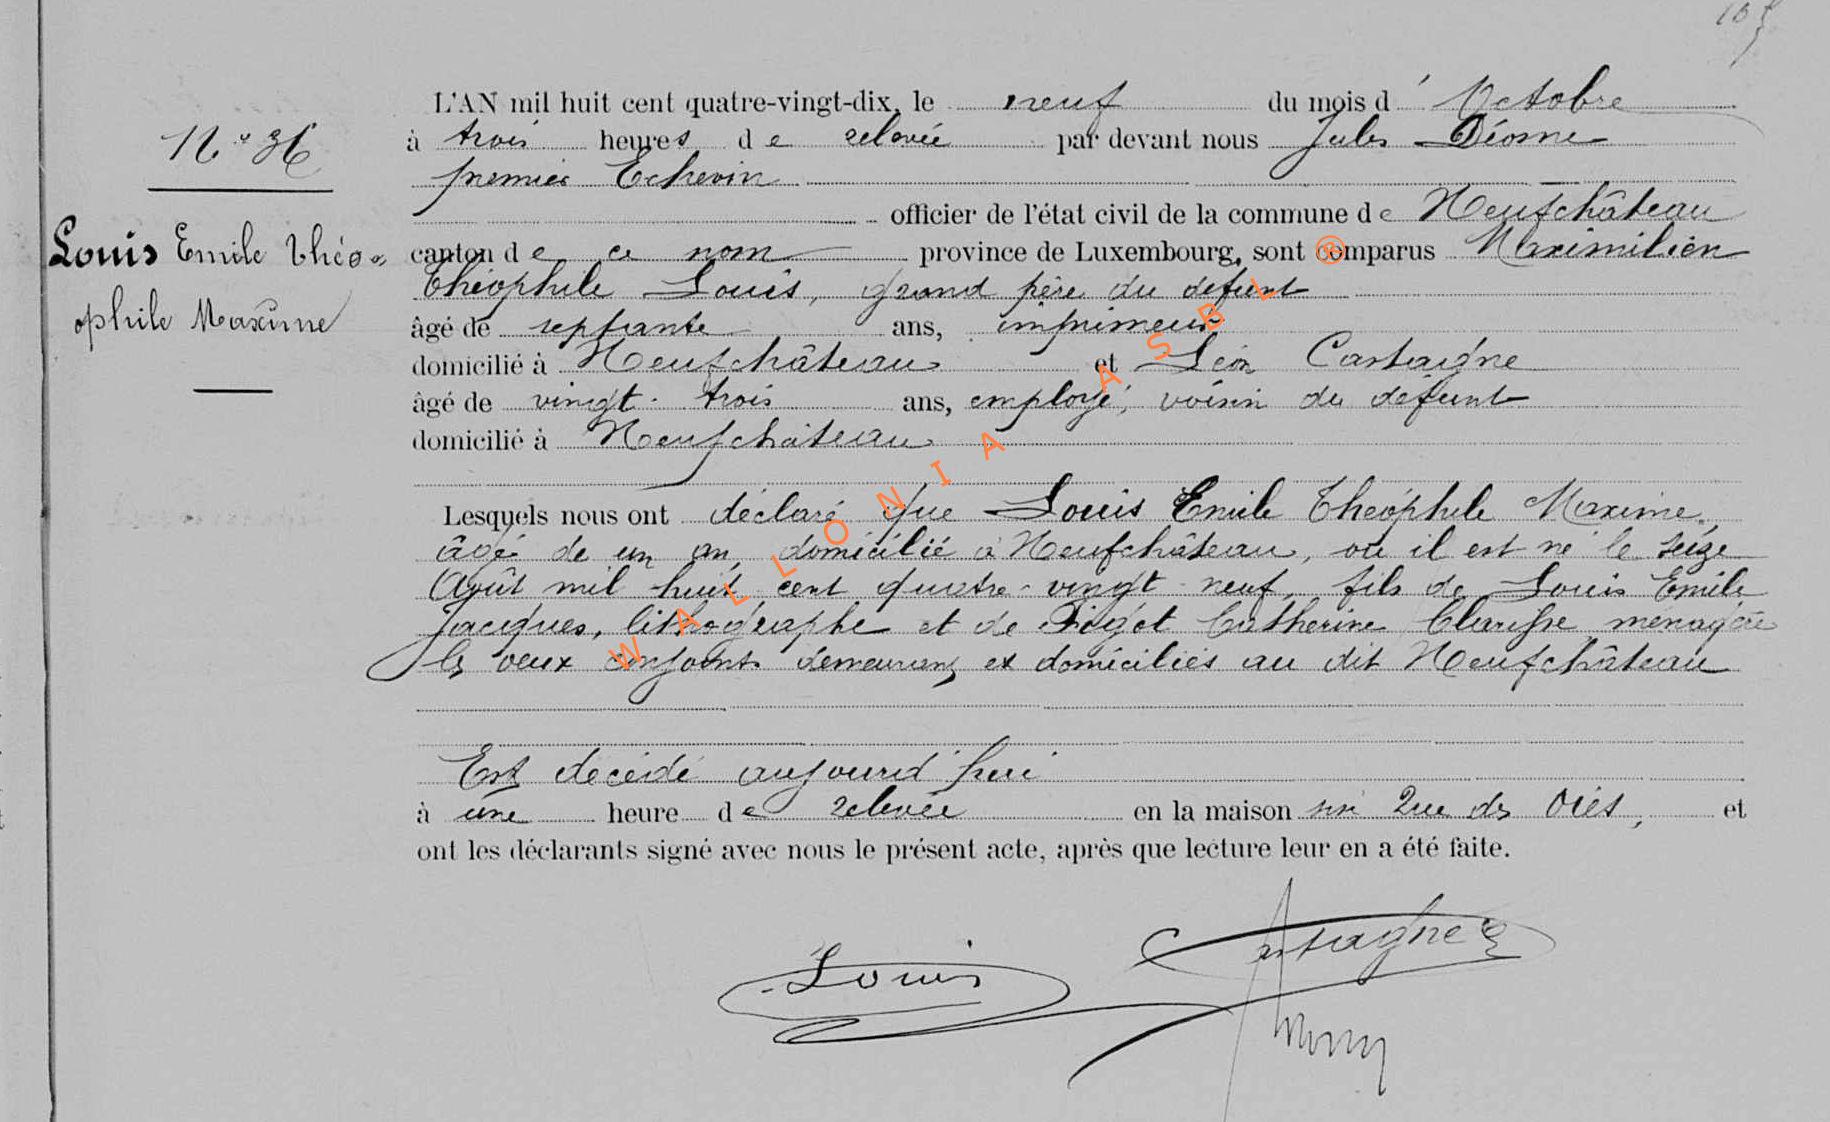 L'AN mil huit cent quatre-vingt-dix, le neuf du mois d'Octobre
N° 36
à trois heures de relevée par devant nous Jules Déome
premier Echevin
officier de l'état civil de la commune de Neufchâteau
Louis Emile Théo-
canton de ce nom province de Luxembourg, sont comparus Maximilien
Théophile Louis, grand père du défunt
ophile Maxime
âgé de septante ans, imprimeur
domicilié à Neufchâteau et Léon Castaigne
âgé de vingt-trois ans, employé, voisin du défunt
domicilié à Neufchâteau
Lesquels nous ont déclaré que Louis Emile Théophile Maxime,
âgé de un an, domicilié à Neufchâteau, où il est né le seize
Août mil huit cent quatre-vingt-neuf, fils de Louis Emile
Jacques, lithographe et de Pigot Catherine Clarisse ménagère
les deux conjoints demeurant et domiciliés au dit Neufchâteau
Est décédé aujourd'hui
à une heure de relevée en la maison sise Rue des Oies, et
ont les déclarants signé avec nous le présent acte, après que lecture leur en a été faite.
Louis
Castaigne
WALLONIA ASBL ®